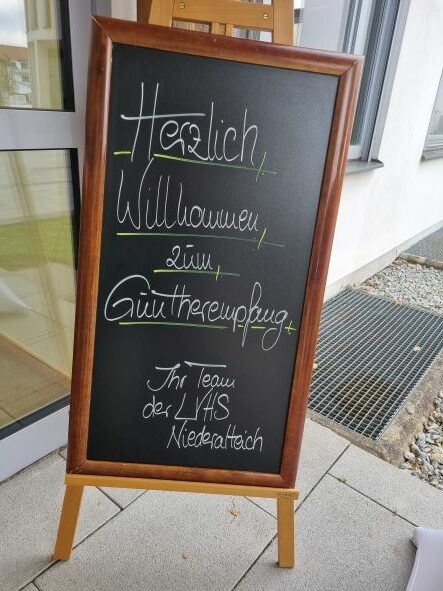 Herzlich
Willkommen
zum
Guntherempfang
Ihr Team
der LVHS
Niederalteich